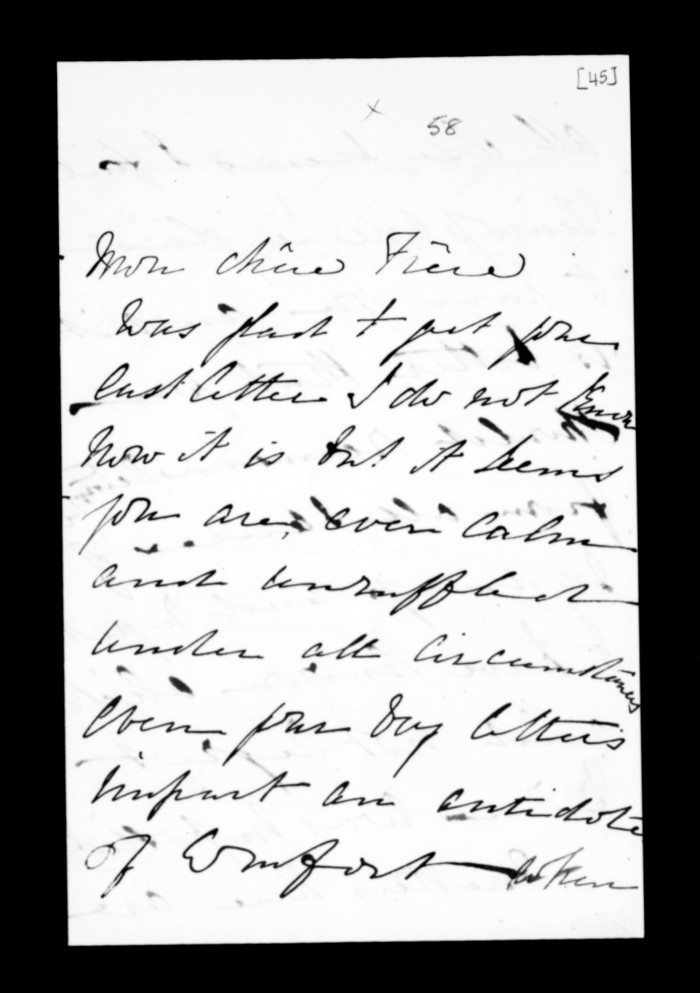 [45]
x
58
Mon chère Frère
Was glad t get your
last letter I do not know
how it is but it seems
you are, even calm
and unruffled
under all circumstances
even your very letters
impart an antidote
of Comfort when